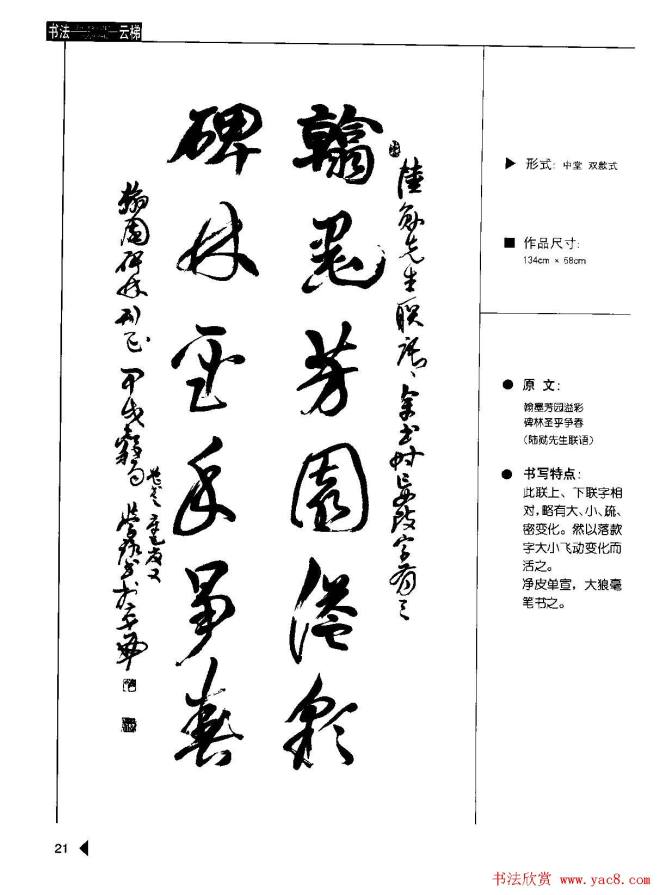 书法——云梯
翰墨芳園溢彩
碑林圣手爭春
先生联语余书时妄改字有三
翰園碑林
甲戌穀雨
▶ 形式: 中堂 双款式
■ 作品尺寸:
134cm × 68cm
● 原文:
翰墨芳园溢彩
碑林圣乎争春
(陆勋先生联语)
● 书写特点:
此联上、下联字相
对,略有大、小、疏、
密变化。然以落款
字大小飞动变化而
活之。
净皮单宣,大狼毫
笔书之。
21
书法欣赏 www.yac8.com